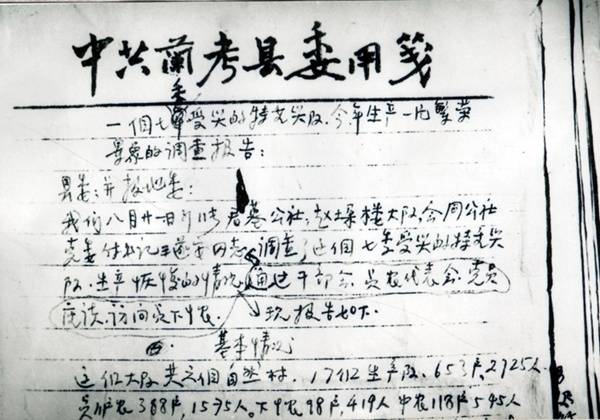 中共蘭考县委用箋
一個七季受灾的特重灾队.今年生产一片繁荣
景象的调查报告:
县委:并报地委:
我们八月廿一日到
公社,赵垛楼大队,会同公社
党委付书记王 同志,调查了這個七季受灾的特重灾
队.生产恢复的情况,通过干部会.贫农代表会.党员
座谈.访问贫下中农.现报告如下.
一. 基本情况
這個大队共 個自然村.17個生产队,653户,2925人.
贫 农388户,1595人.下中农98户,419人 中农118户545人